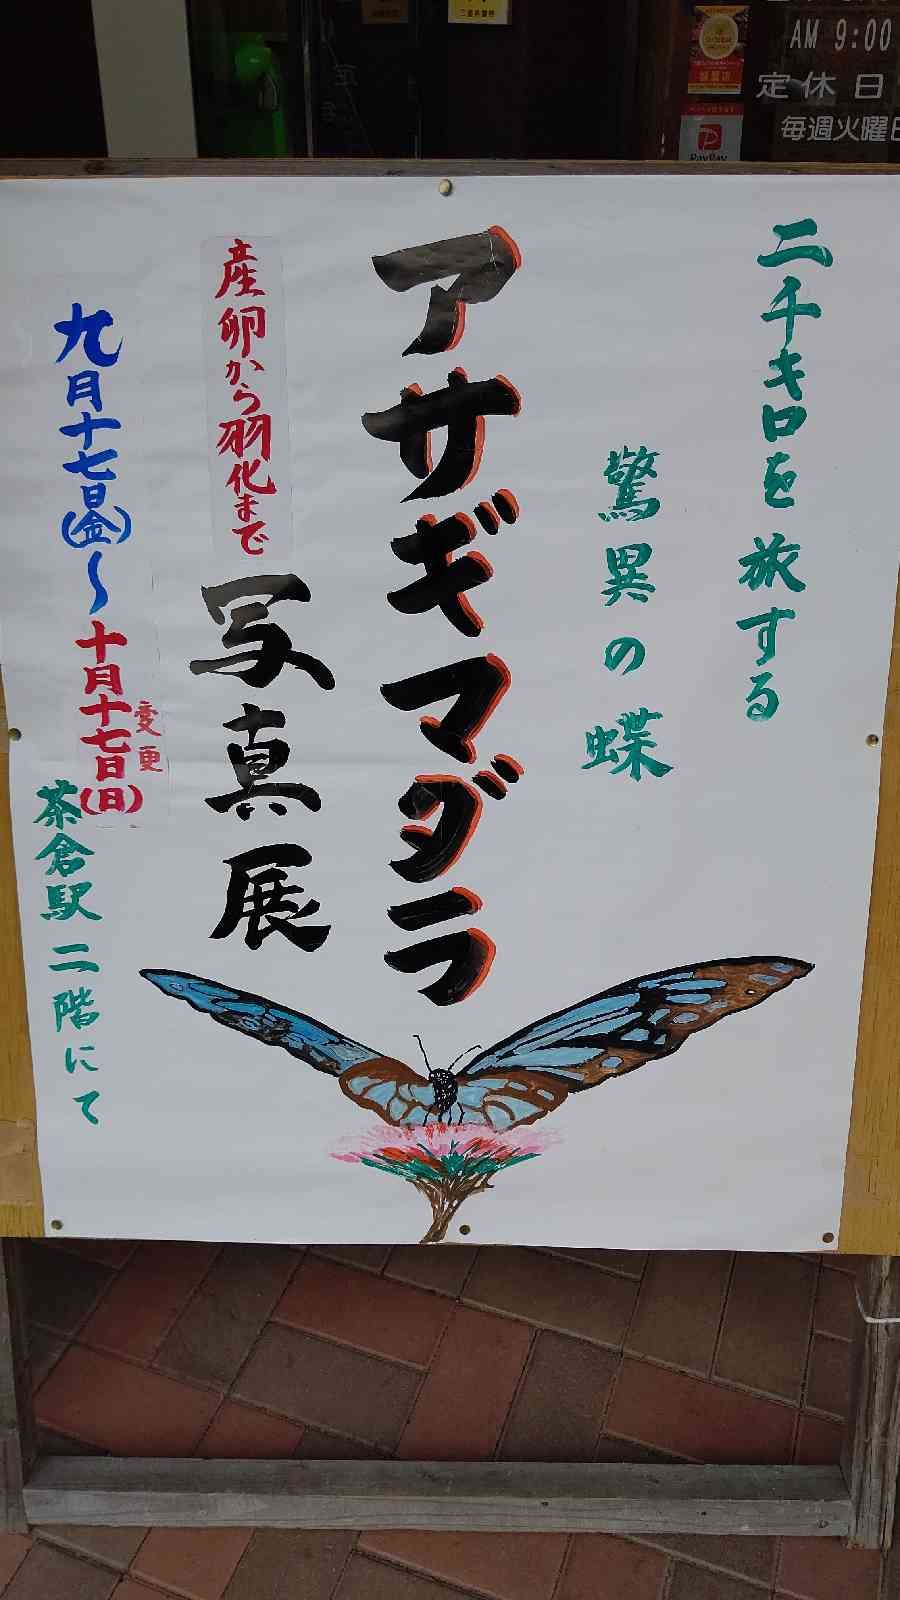 AM 9:00
定休日
毎週火曜日
PayPay
二千キロを旅する
驚異の蝶
アサギマダラ
産卵から羽化まで
写真展
九月十七日(金)〜十月十七日(日)
変更
茶倉駅二階にて